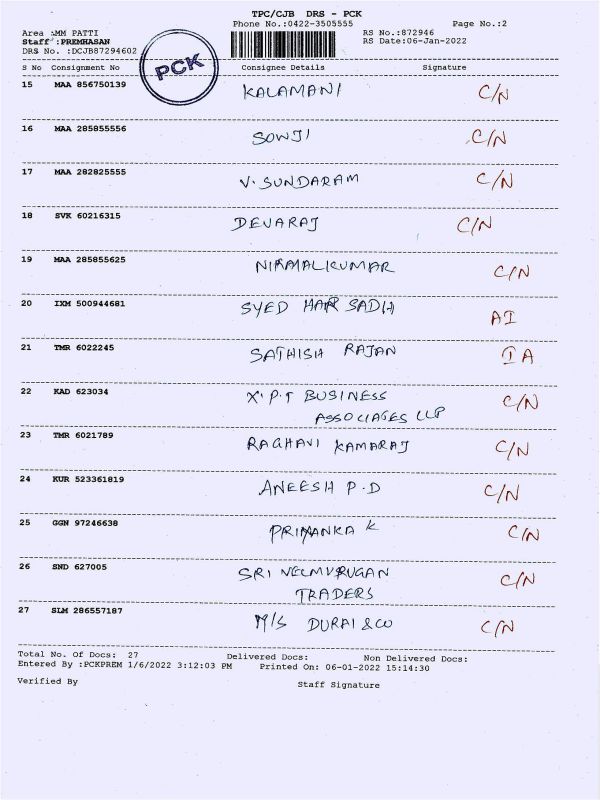 TPC/CJB DRS - PCK
Phone No.:0422-3505555 Page No.:2
Area :MM PATTI RS No.:872946
Staff :PREMHASAN RS Date:06-Jan-2022
DRS No. :DCJB87294602
PCK
S No Consignment No Consignee Details Signature
15 MAA 856750139 KALAMANI C/N
16 MAA 285855556 SOWJI C/N
17 MAA 282825555 V. SUNDARAM C/N
18 SVK 60216315 DEVARAJ C/N
19 MAA 285855625 NIRMALKUMAR C/N
20 IXM 500944681 SYED HAR SADH AI
21 TMR 6022245 SATHISH RAJAN IA
22 KAD 623034 X.P.T BUSINESS C/N
ASSOCIAGES LLP
23 TMR 6021789 RAGHAVI KAMARAJ C/N
24 KUR 523361819 ANEESH P.D C/N
25 GGN 97246638 PRIYANKA K C/N
26 SND 627005 SRI VELMURUGAN C/N
TRADERS
27 SLM 286557187 M/S DURAI & CO C/N
Total No. Of Docs: 27 Delivered Docs: Non Delivered Docs:
Entered By :PCKPREM 1/6/2022 3:12:03 PM Printed On: 06-01-2022 15:14:30
Verified By Staff Signature